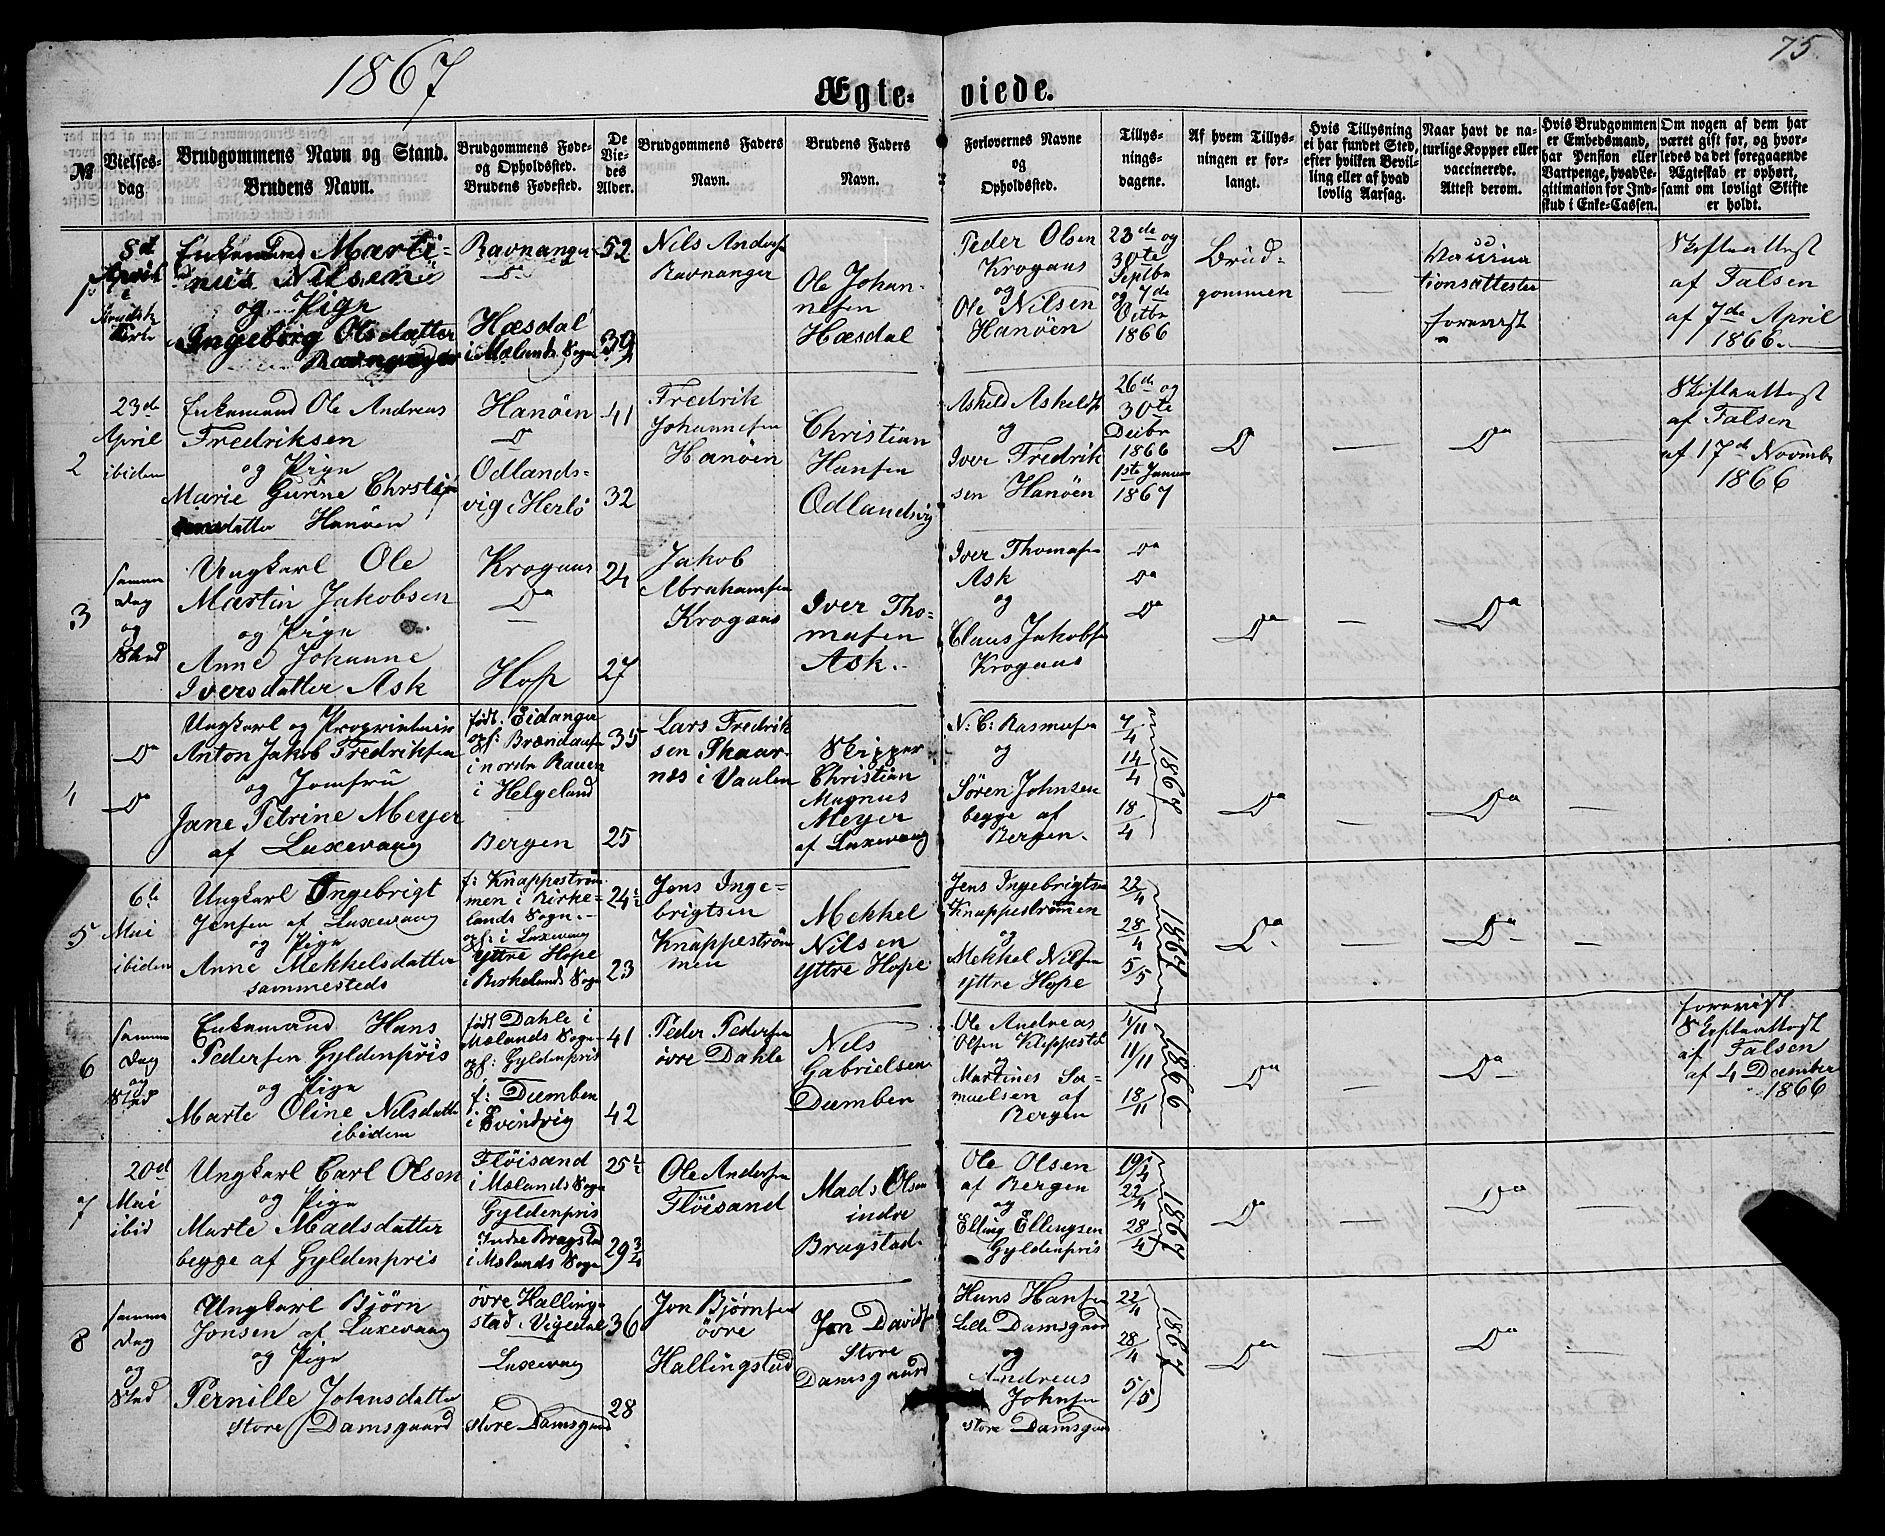 1867
75
Ægte- viede.
№
Vielses-
dag
Brudgommens Navn og Stand.
Brudens Navn.
Brudgommens Føde-
og Opholdssted.
Brudens Fødested.
De
Vie-
des
Alder.
Brudgommens Faders
Navn.
Brudens Faders
Navn.
Forlovernes Navne
og
Opholdssted.
Tillys-
nings-
dagene.
Af hvem Tillys-
ningen er for-
langt.
Hvis Tillysning
ei har fundet Sted,
efter hvilken Bevil-
ling eller af hvad
lovlig Aarsag.
Naar havt de na-
turlige Kopper eller
vaccinerede.
Attest derom.
Hvis Brudgommen
er Embedsmand,
har Pension eller
Vartpenge, hvad Le-
gitimation for Ind-
skud i Enke-Cassen.
Om nogen af dem har
været gift før, og hvor-
ledes da det foregaaende
Ægteskab er ophørt,
samt om lovligt Skifte
er holdt.
1
8d
April
i
Kirke
Enkemand Marti-
nus Nilsen
og Pige
Ingeborg Olsdatter
Ravnanger
Ravnanger
Do
Hæsdal
i Mælands Sogn
52
39
Nils Anders
Ravnanger
Ole Johan-
nesen
Hæsdal
Peder Olsen
Krogaas
og
Ole Nilsen
Hanöen
23de og
30te
Septbr
og 7de
Octbr
1866
Brud-
gommen
—
Vaccina
tionsattester
forevist
Skifteattest
af Falsen
af 7de April
1866.
2
23de
April
ibidem
Enkemand Ole Andreas
Fredriksen
og Pige
Marie Gurine Christ
datter Hanöen
Hanöen
Do
Odlands-
vig i Herlö
41
32
Fredrik
Johannesen
Hanöen
Christian
Hansen
Odlandsvig
Askild Askilds
og
Iver Fredrik
sen Hanöen
26de og
30te
Decbr
1866
1ste Januar
1867
Do
—
Do
Skifteattest
af Falsen
af 17de Novembr
1866
3
samme
Dag
og
Sted
Ungkarl Ole
Martin Jakobsen
og Pige
Anne Johanne
Iversdatter Ask
Krogaas
Do
Hop
24
27
Jakob
Abrahamsen
Krogaas
Iver Tho-
masen
Ask.
Iver Thomasen
Ask
og
Claus Jakobs
Krogaas
Do
Do
Do
Do
—
Do
4
Do
Do
Ungkarl og Proprietair
Anton Jakob Fredriksen
og Jomfru
Jane Petrine Meyer
af Laxevaag
født: Eidanger
opf:
i nordre Ranen
i Helgeland
Bergen
35
25
Lars Fredrik
sen Thaar-
nes i Vaalen
Skipper
Christian
Magnus
Meyer
af Laxevaag
N: C: Rasmusen
og
Sören Johnsen
begge af
Bergen.
7/4
14/4
18/4
1867
Do
—
Do
—
5
6te
Mai
ibidem
Ungkarl Ingebrigt
Jensen af Laxevaag
og Pige
Anne Mekkelsdatter
sammesteds
f: Knappeström
men i Birke-
lands Sogn.
opf: i Laxevaag
yttre Hope
i Birkelands Sogn
24½
23
Jens Inge-
brigtsen
Knappeström
men
Mekkel
Nilsen
yttre Hope
Jens Ingebrigtsen
Knappeströmmen
og
Mekkel Nilsen
yttre Hope
22/4
28/4
5/5
1867
Do
—
Do
—
6
samme
Dag
og
Sted
Enkemand Hans
Pedersen Gyldenpris
og Pige
Marte Oline Nilsdatter
ibidem
født Dahle i
Mælands Sogn
opf: Gyldenpris
f: Dumben
i Evindvig
41
42
Peder Pedersen
övre Dahle
Nils
Gabrielsen
Dumben
Ole Andreas
Olsen Kleppestö
og
Martines Sa-
muelsen af
Bergen
4/11
11/11
18/11
1866
Do
—
Do
forevist
Skifteattest
af Falsen
af 4 December
1866
7
20d
Mai
ibid
Ungkarl Carl Olsen
og Pige
Marte Madsdatter
begge af Gyldenpris
Flöisand
i Mælands Sogn
Gyldenpris
Indre Bragstad
i Mælands Sogn
25½
29¾
Ole Andersen
Flöisand
Mads Olsen
indre
Bragstad
Ole Olsen
af Bergen
og
Elling Ellingsen
Gyldenpris
19/4
22/4
28/4
1867
Do
—
Do
—
8
samme
Dag
og
Sted
Ungkarl Björn
Jonsen af Laxevaag
og Pige
Pernille Johnsdatter
store Damsgaard
övre Halling-
stad i Vigedal
Laxevaag
store Damsgaard
36
28
Jon Björnsen
övre
Hallingstad
Jon Davids
store
Damsgaard
Hans Hansen
Lille Damsgaard
og
Andreas
Johnsen
store Damsgaard
22/4
28/4
5/5
1867
Do
—
Do
—